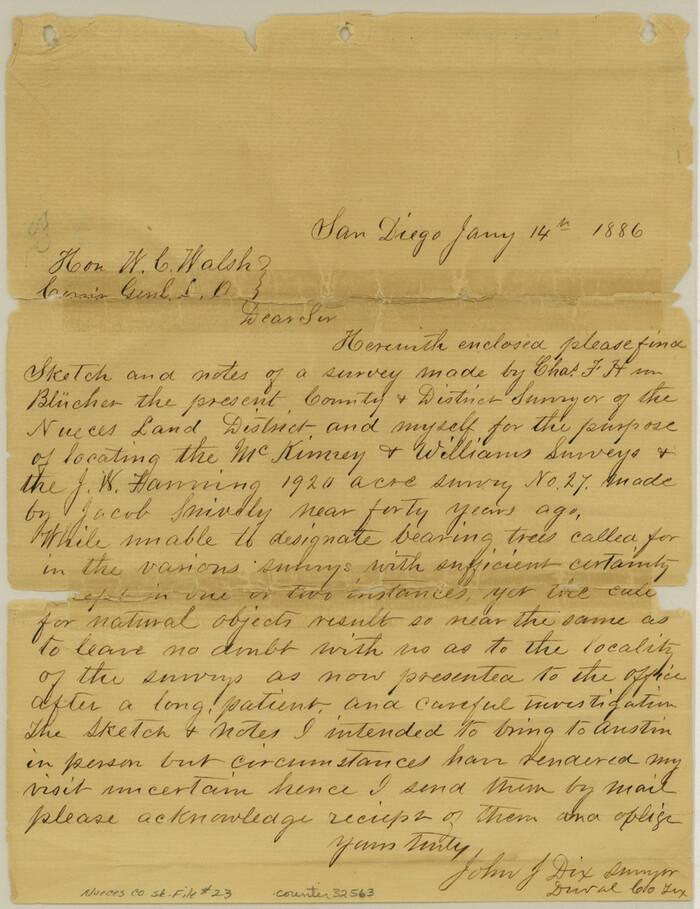 San Diego Jany 14th 1886
Hon W. C. Walsh
Comr Genl. L. O.
Dear Sir
Herewith enclosed please find
Sketch and notes of a survey made by Chas. F H von
Blücher the present County & District Surveyor of the
Nueces Land District and myself for the purpose
of locating the McKinney & Williams Surveys &
the J. W. Hanning 1920 acre survey No. 27. made
by Jacob Snively near forty years ago.
While unable to designate bearing trees called for
in the various surveys with sufficient certainty
in one or two instances, yet the calls
for natural objects result so near the same as
to leave no doubt with us as to the locality
of the surveys as now presented to the office
after a long, patient, and careful investigation
The Sketch & Notes I intended to bring to Austin
in person but circumstances have rendered my
visit uncertain hence I send them by mail
please acknowledge reciept of them and oblige
Yours truly
John J Dix Surveyor
Duval Co Tex
Nueces Co. Sk. File #23
counter 32563